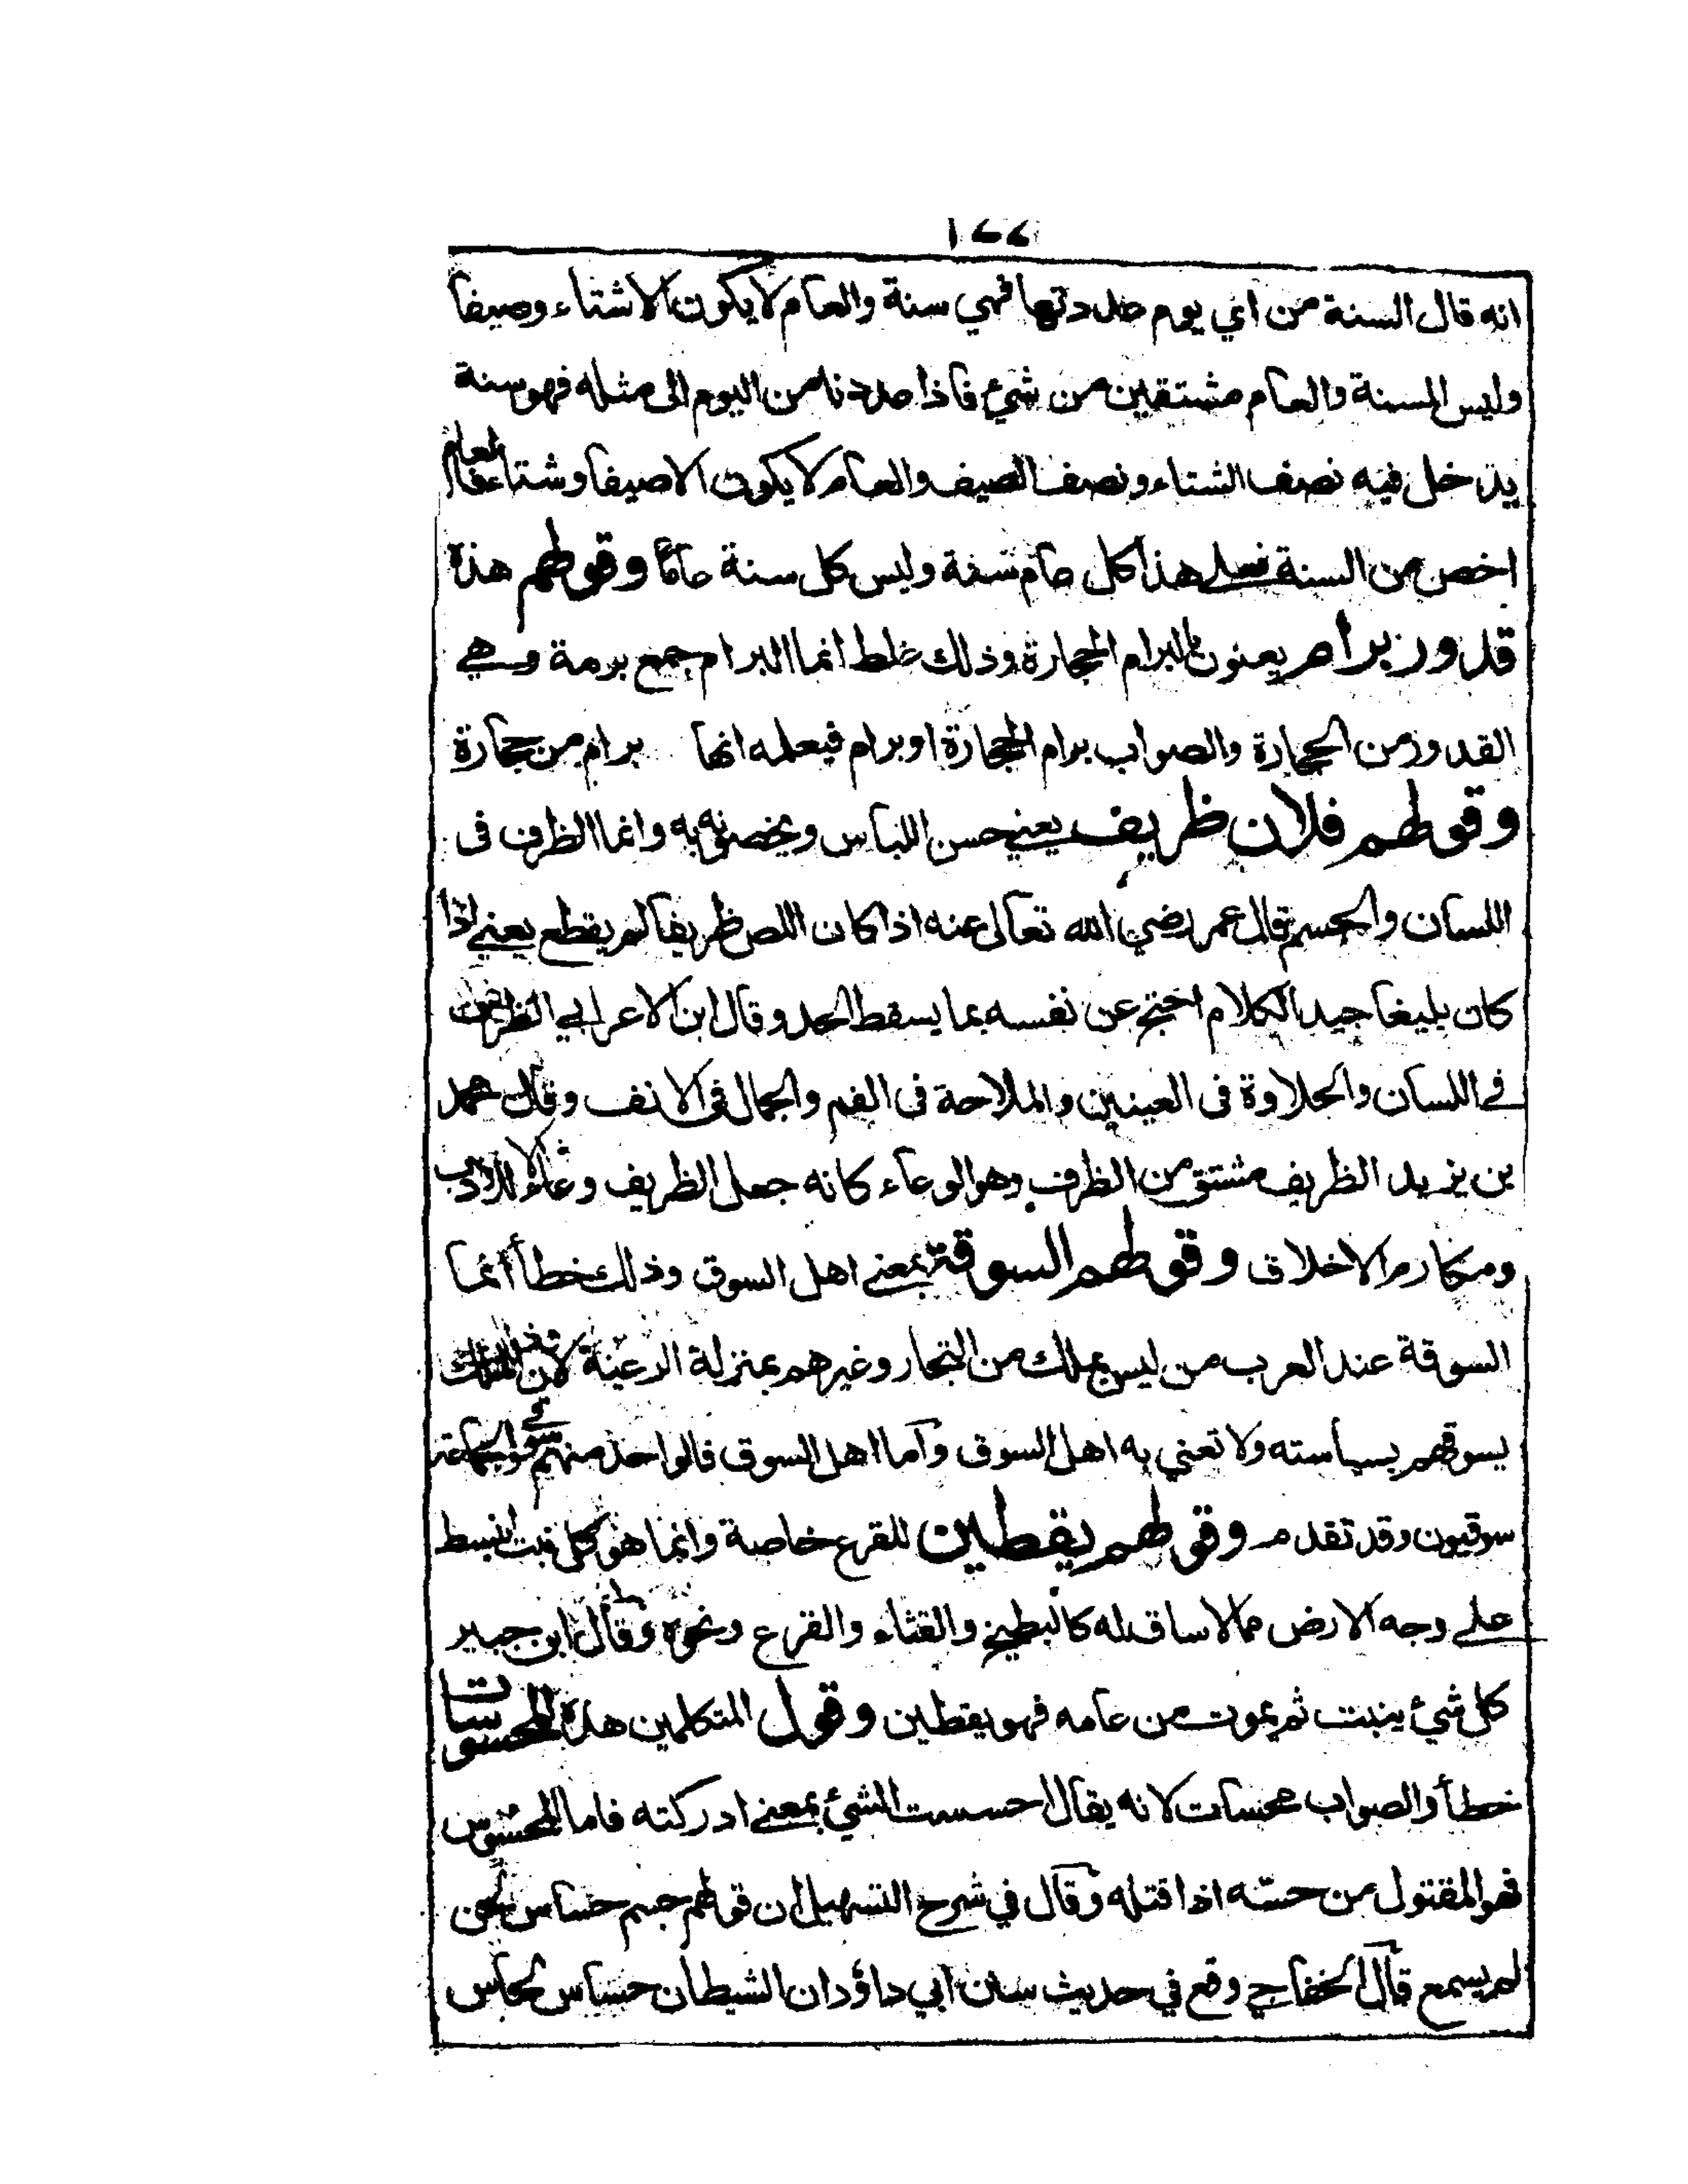 ١٧٧
انه قال السنة من اي يوم عددتها فهي سنة والعام لا يكون الا شتاء وصيفا
وليس السنة والعام مشتقين من شيء فاذا عددنا من اليوم الى مثله فهو سنة
يدخل فيه نصف الشتاء ونصف الصيف والعام لا يكون الا صيفا وشتاء فالعام
اخص من السنة فعلى هذا كل عام سنة وليس كل سنة عامًا وقولهم هذه
قدور برام يعنون بالبرام الحجارة وذلك غلط انما البرام جمع برمة وهي
القدور من الحجارة والصواب برام الحجارة او برام فيعلم انها برام من حجارة
وقولهم فلان ظريف يعني حسن اللباس ويخصونه به وانما الظرف فى
اللسان والجسم قال عمر رضي الله تعالى عنه اذا كان اللص ظريفا لم يقطع يعني اذا
كان بليغا جيد الكلام احتج عن نفسه بما يسقط الحد وقال ابن الاعرابي الظرف
في اللسان والحلاوة فى العينين والملاحة فى الفم والجمال فى الانف وقال محمد
بن يزيد الظريف مشتق من الظرف وهو الوعاء كانه جعل الظريف وعاء للادب
ومكارم الاخلاق وقولهم السوقة بمعنى اهل السوق وذلك خطأ انما
السوقة عند العرب من ليس بملك من التجار وغيرهم بمنزلة الرعية لان الملك
يسوقهم بسياسته ولا تعني به اهل السوق وأما اهل السوق فالواحد منهم سوقي والجماعة
سوقيون وقد تقدم وقولهم يقطين للقرع خاصة وانما هو كل نبت انبسط
على وجه الارض مما لا ساق له كالبطيخ والقثاء والقرع ونحوه وقال ابن جبير
كل شيء ينبت ثم يموت من عامه فهو يقطين وقول المتكلمين هذه المحسوسات
خطأ والصواب محسات لانه يقال احسست الشيء بمعنى ادركته فاما المحسوس
فهو المقتول من حسّه اذا قتله وقال في شرح التسهيل ان قولهم جسم حساس لحن
لم يسمع قال الخفاجي وقع في حديث سنن ابي داؤد ان الشيطان حساس لحاس